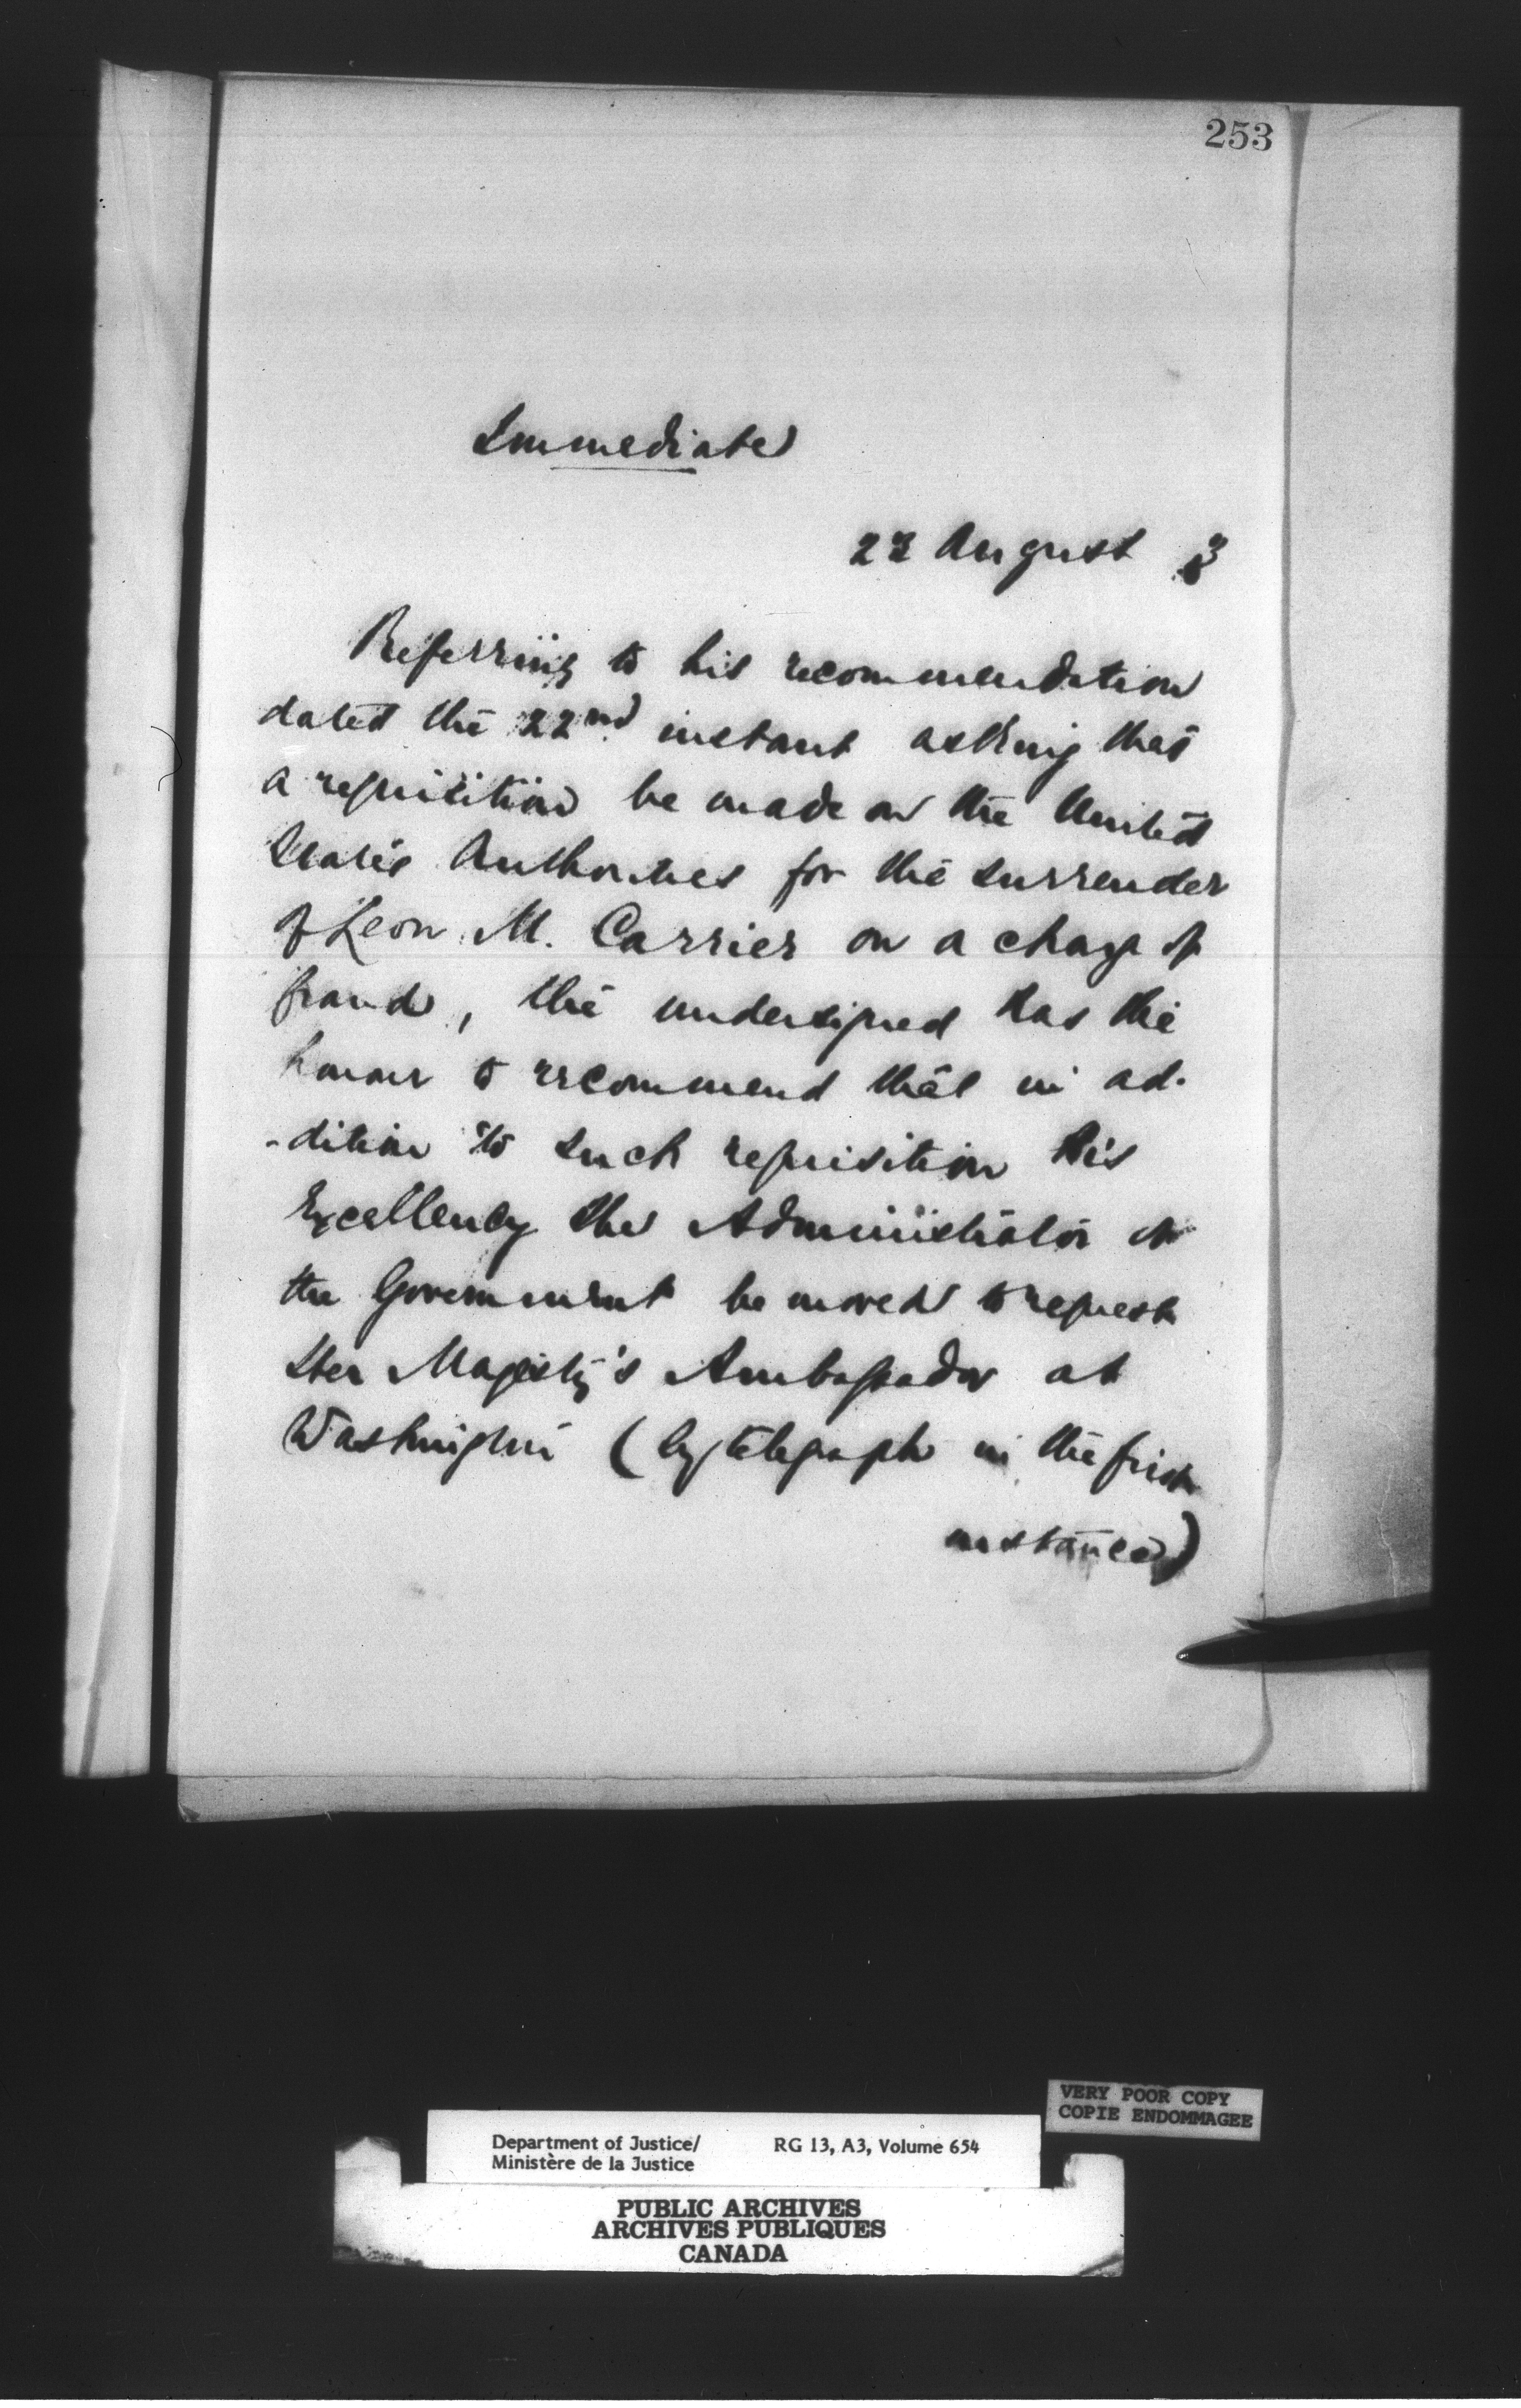 253
Immediate
23 August 3
Referring to his recommendation
dated the 22nd instant asking that
a requisition be made on the United
States Authorities for the surrender
of Leon M. Carrier on a charge of
fraud, the undersigned has the
honour to recommend that in ad-
-dition to such requisition His
Excellency the Administrator of
the Government be moved to request
Her Majesty's Ambassador at
Washington (by telegraph in the first
instance)
VERY POOR COPY
COPIE ENDOMMAGEE
Department of Justice/ RG 13, A3, Volume 654
Ministère de la Justice
PUBLIC ARCHIVES
ARCHIVES PUBLIQUES
CANADA